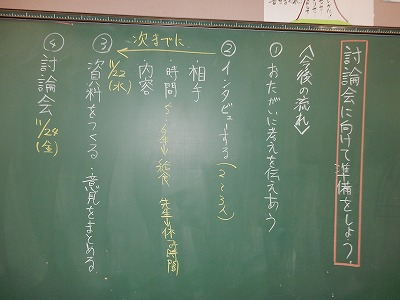 討論会に向けて準備をしよう。
〈今後の流れ〉
①おたがいに考えを伝えあう
②インタビューする(2~3人)
・相手
・時間 5・6年生 給食 先生 中休み時間
・内容
次までに
③資料をつくる 意見をまとめる
11/22(水)
④討論会 11/24(金)